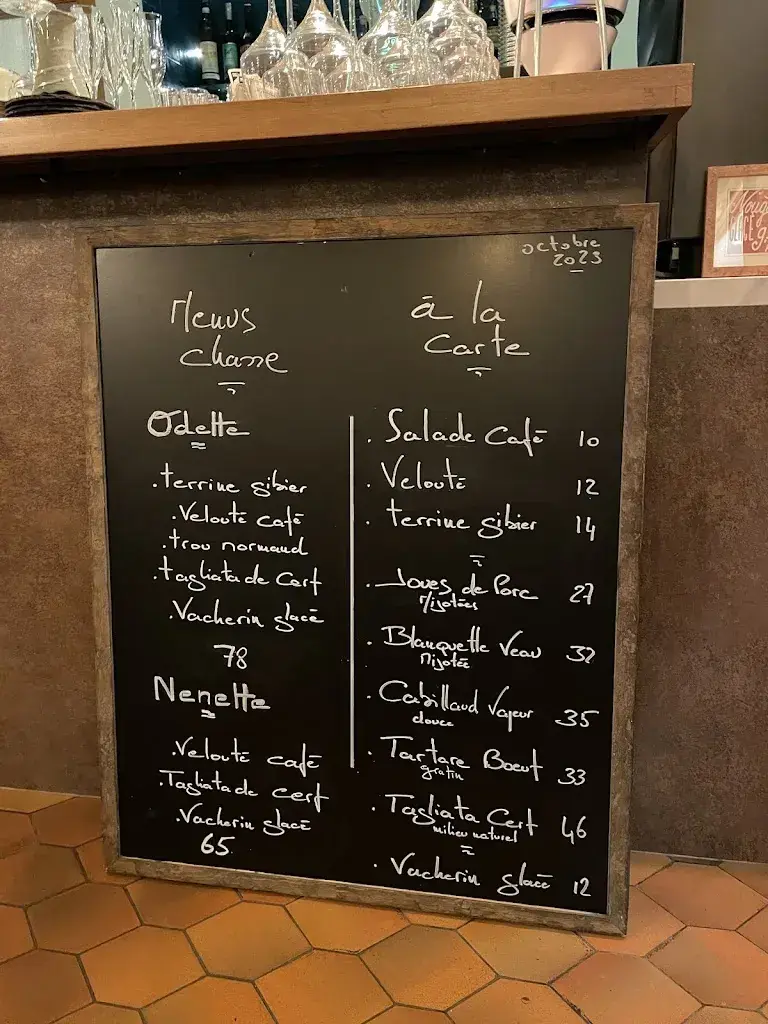 octobre
2023
Menus
chasse
Odette
.terrine gibier
.Velouté café
.trou normand
.tagliata de cerf
.Vacherin glacé
78
Nenette
.Velouté café
.Tagliata de cerf
.Vacherin glacé
65
à la
carte
. Salade Café 10
. Velouté 12
. terrine gibier 14
. Joues de Porc 27
Mijotées
. Blanquette Veau 32
Mijotée
. Cabillaud Vapeur 35
douce
. Tartare Boeuf 33
gratin
. Tagliata Cerf 46
milieu naturel
. Vacherin glacé 12